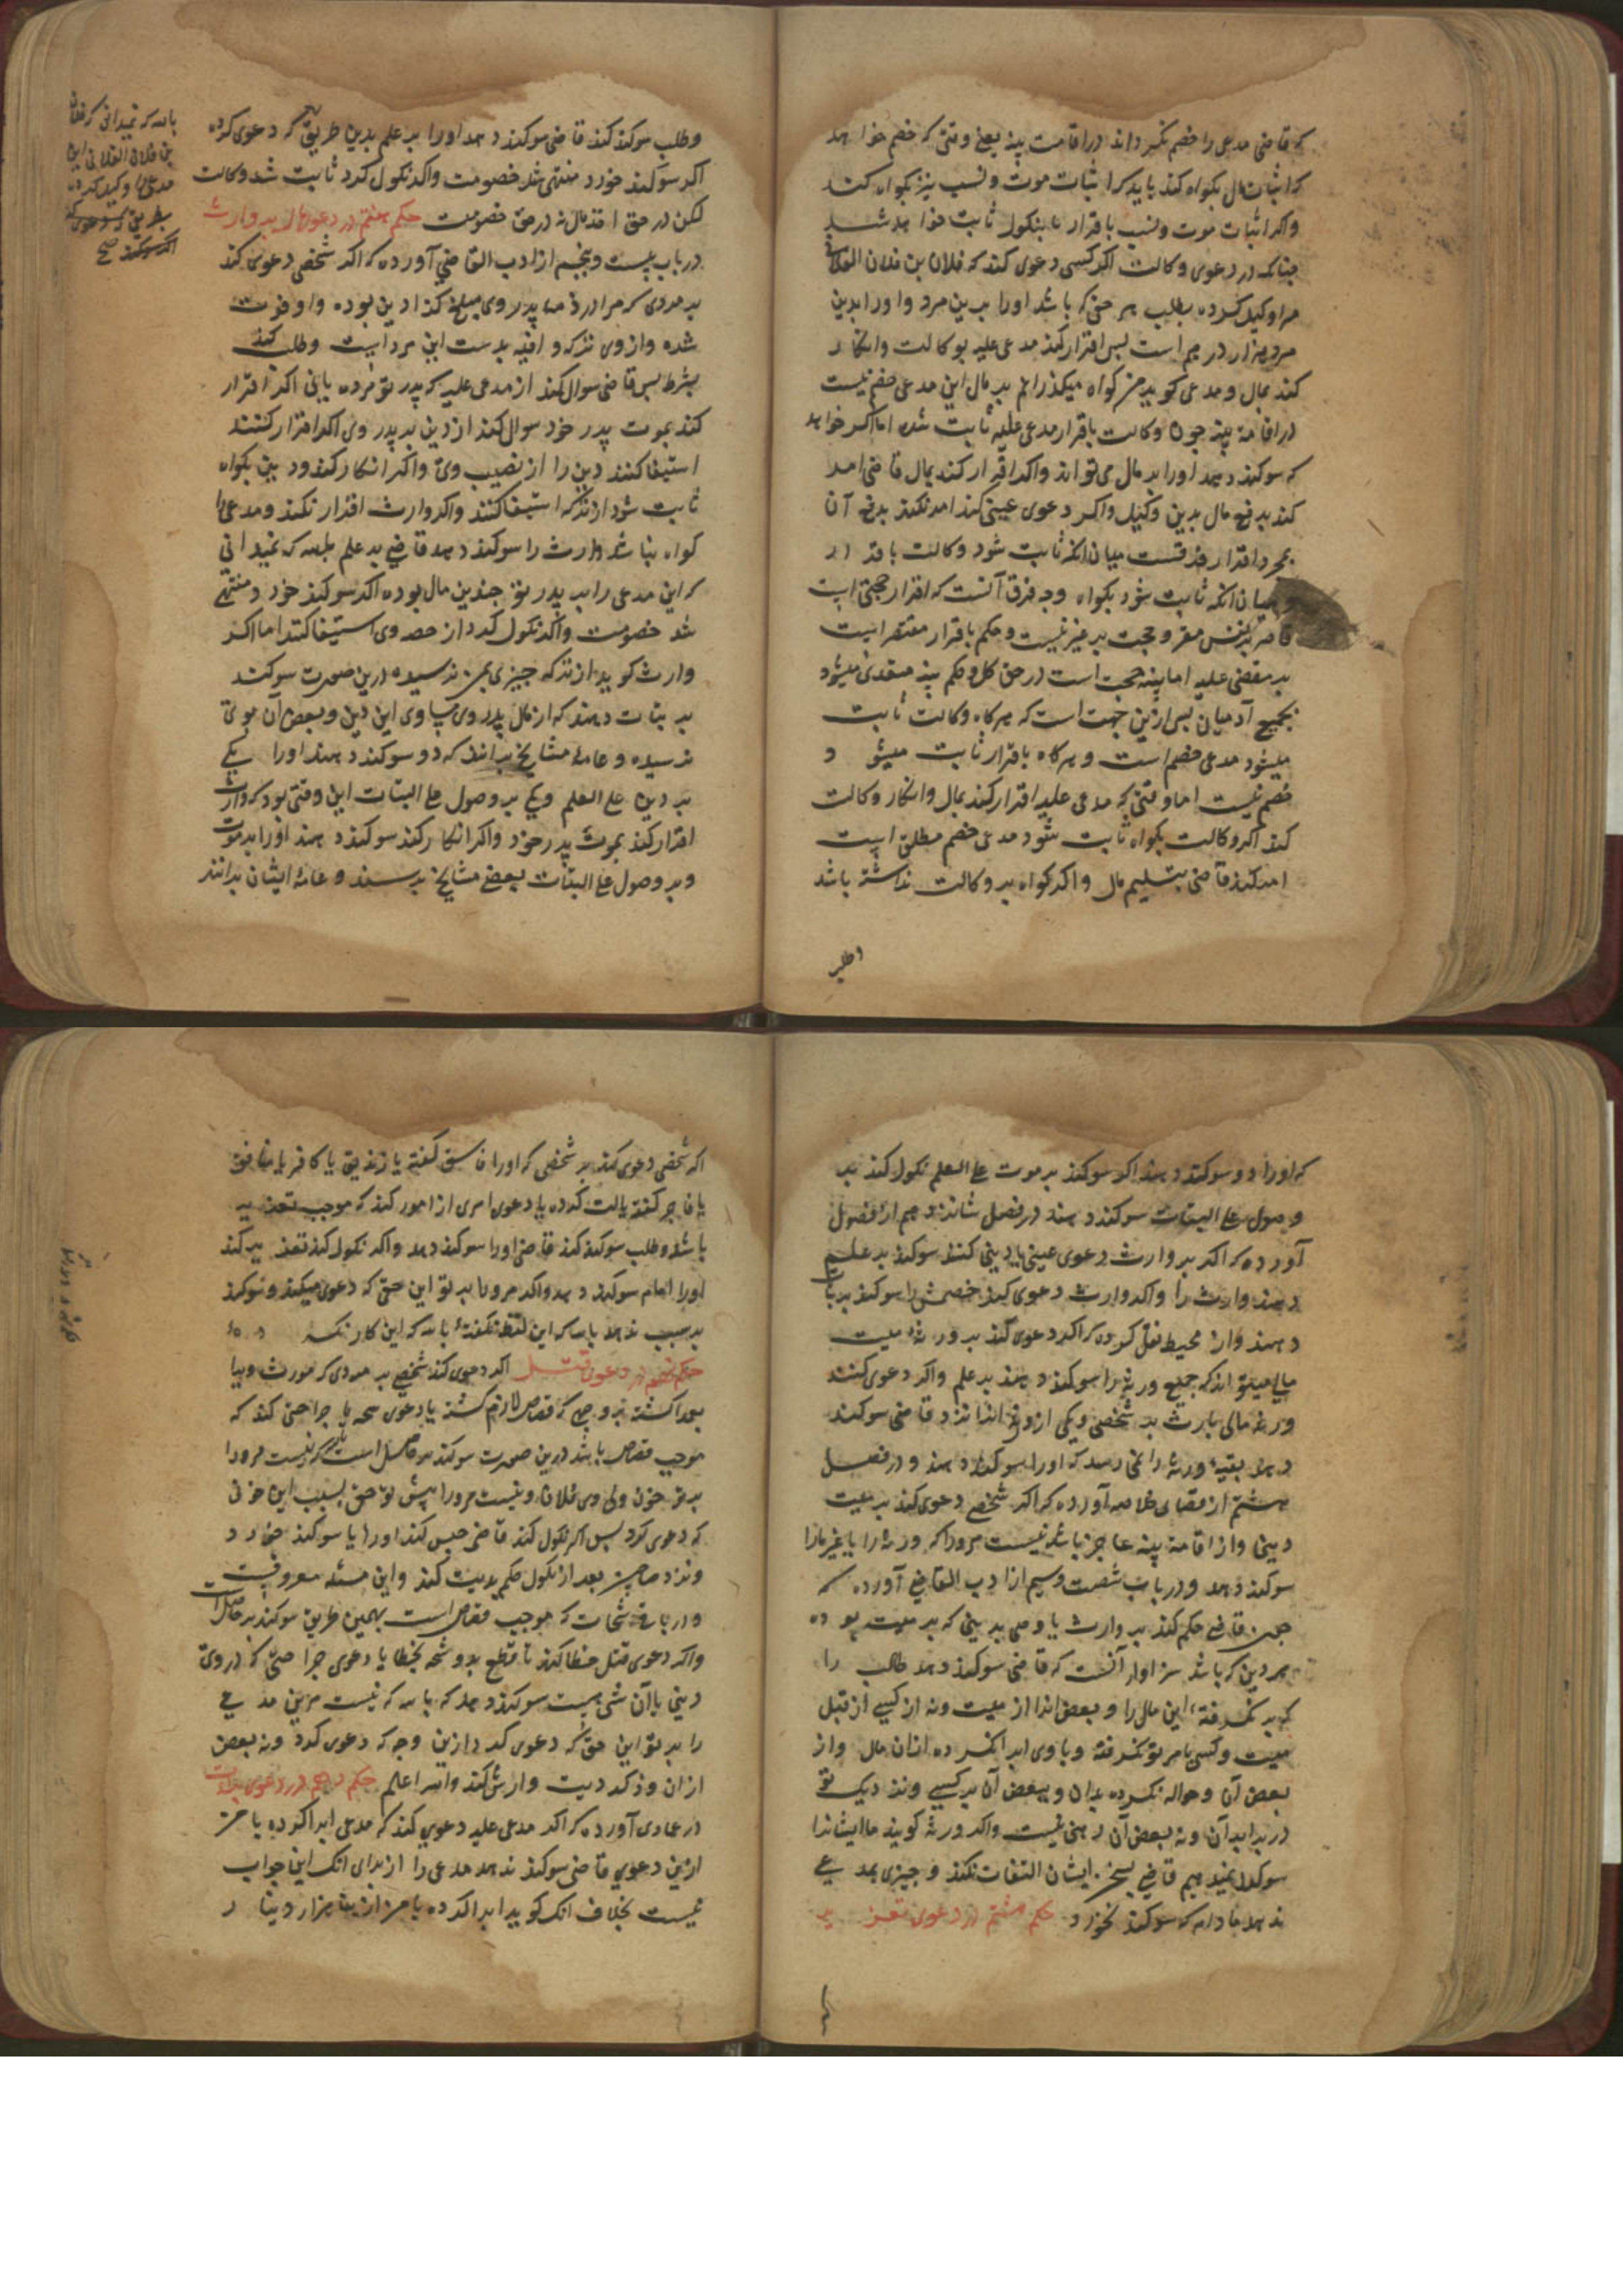 که قاضی مدعی را خصم نمیرداند در اقامت بینه یعنی وقتی که خصم خواهد
که اثبات مال بکواه کند باید که اثبات موت و نسب نیز بکواه کند
واکر اثبات موت و نسب باقرار یا بنکول ثابت خواهد شد
جنانکه در دعوی وکالت اکر کسی دعوی کند که فلان بن فلان الفلانی
مرا وکیل کرده بطلب هر حقی که باشد او را برین مرد واو را بدین
مرد هزار درهم است بس اقرار کند مدعی علیه بوکالت وانکار
کند بمال و مدعی کوید من کواه میکذرانم بر مال این مدعی خصم نیست
در اقامة بینه جون وکالت باقرار مدعی علیه ثابت شده اما اکر خواهد
که سوکند دهد او را بر مال می تواند واکر اقرار کند بمال قاضی امر
کند بدفع مال بدین وکیل واکر دعوی عینی کند امر نکند بدفع آن
بمجرد اقرار فرقست میان انکه ثابت شود وکالت باقرار
و میان انکه ثابت شود بکواه وجه فرق آنست که اقرار حجتی است
قاصر بر نفس مقر و حجت بر غیر نیست و حکم باقرار مقتصر است
بر مقضی علیه اما بینه حجت است در حق کل و حکم بینه متعدی میشود
بجمیع آدمیان بس ازین جهت است که هرکاه وکالت ثابت
میشود مدعی خصم است و هرکاه باقرار ثابت میشود
خصم نیست اما وقتی که مدعی علیه اقرار کند بمال وانکار وکالت
کند اکر وکالت بکواه ثابت شود مدعی خصم مطلق است
امر کند قاضی بتسلیم مال واکر کواه بر وکالت نداشته باشد
وطلب
وطلب سوکند کند قاضی سوکند دهد او را بر علم بدین طریق که دعوی کرده
اکر سوکند خورد منتهی شد خصومت واکر نکول کرد ثابت شد وکالت
لکن در حق اخذ مال نه در حق خصومت حکم هفتم در دعویهای بر وارث
در باب بیست و پنجم از ادب القاضی آورده که اکر شخصی دعوی کند
بر مردی که مرا در ذمه پدر وی مبلغ کذا دین بوده واو فوت
شده واز وی ترکه وافیه بدست این مرد است وطلب کند
بشرط بس قاضی سوال کند از مدعی علیه که پدر تو مرده یا نی اکر اقرار
کند بموت پدر خود سوال کند از دین بر پدر وی اکر اقرار کنند
استیفا کنند دین را از نصیب وی واکر انکار کند ودین بکواه
ثابت شود از ترکه استیفا کنند واکر وارث اقرار نکند و مدعی را
کواه نباشد وارث را سوکند دهد قاضی بر علم بالله که نمیدانی
که این مدعی را بر پدر تو جندین مال بوده اکر سوکند خورد منتهی
شد خصومت واکر نکول کرد از حصه وی استیفا کنند اما اکر
وارث کوید از ترکه جیزی بمن نرسیده درین صورت سوکند
بر بتات دهند که از مال پدر وی مساوی این دین و بعض آن بوی
نرسیده و عامهٔ مشایخ برانند که دو سوکند دهند او را یکی
بر دین علی العلم ویکی بر وصول علی البتات این وقتی بود که وارث
اقرار کند بموت پدر خود واکر انکار کند سوکند دهند او را بر موت
وبر وصول علی البتات بعضی مشایخ برینند و عامهٔ ایشان برانند
بالله که نمیدانی که فلان
بن فلان الفلانی این
مدعی را وکیل کرده
بطریقی که دعوی کرده
اکر سوکند صح
که او را دو سوکند دهند اکر سوکند بر موت علی العلم نکول کند بر
وصول علی البتات سوکند دهند در فصل شانزدهم از فصول
آورده که اکر بر وارث دعوی عینی یا دینی کنند سوکند بر علم
دهند وارث را واکر وارث دعوی کند خصمش را سوکند بر بتات
دهند واز محیط نقل کرده که اکر دعوی کند بر ورثهٔ میت
مالی میتواند که جمیع ورثه را سوکند دهند بر علم واکر دعوی کنند
ورثه مالی بارث بر شخصی ویکی از ورثه قاضی سوکند
دهد بقیهٔ ورثه را نمی رسد که او را سوکند دهند و در فصل
هشتم از قضای خلاصه آورده که اکر شخصی دعوی کند بر میت
دینی واز اقامة بینه عاجز باشد نیست مرورا که ورثه را یا غرما را
سوکند دهد ودر باب شصت وسیم از ادب القاضی آورده که
جون قاضی حکم کند بر وارث یا وصی بدینی که بر میت بوده
هر دین که باشد سزاوار آنست که قاضی سوکند دهد طالب را
که نکرفته این مال را و بعض انرا از میت ونه از کسی از قبل
میت وکسی بامر تو نکرفته وبا وی ابرا نکرده ازان مال واز
بعض آن وحواله نکرده بدان وببعض آن بر کسی ونزدیک تو
در برابر آن ونه بعض آن رهنی نیست واکر ورثه کویند ما ایشانرا
سوکند نمیدهیم قاضی بسخن ایشان التفات نکند وجیزی بمدعی
ندهد مادام که سوکند نخورد حکم هشتم در دعوی تعزیر
اکر شخصی دعوی کند بر شخصی که او را فاسق کفته یا زندیق یا کافر یا منافق
یا فاجر کفته یا لت کرده یا دعوی امری از امور کند که موجب تعزیر
باشد وطلب سوکند کند قاضی او را سوکند دهد واکر نکول کند تعزیر کند
او را امام سوکند دهد والله مرورا بر تو این حق که دعوی میکند وسوکند
بر سبب ندهد بالله که این لفظ نکفتهٔ بالله که این کار نکردهٔ
حکم نهم در دعوی قتل اکر دعوی کند شخصی بر مردی که مورث ویرا
بعمد کشته بر وجهی که قصاص لازم کشته یا دعوی شجه یا جراحتی کند که
موجب قصاص باشد درین صورت سوکند بر حاصل است بالله که نیست مرورا
بر تو خون ولی وی فلان ونیست مرورا پیش تو حق بسبب این خونی
که دعوی کرد بس اکر نکول کند قاضی حبس کند او را یا سوکند خورد
ونزد صاحبین بعد از نکول حکم بدیت کند واین مسئله معروفست
ودر باقی شجات که موجب قصاص است بهمین طریق سوکند بر حاصل است
واکر دعوی قتل خطا کند یا قطع ید وشجه بخطا یا دعوی جراحتی که در وی
دیتی یا آن شی هست سوکند دهد که بالله که نیست مرین مدعی
را بر تو این حق که دعوی کرد ازین وجه که دعوی کرد ونه بعض
ازان وذکر دیت وارش کند والله اعلم حکم دهم در دعوی برات
در عمادی آورده که اکر مدعی علیه دعوی کند که مدعی ابرا کرده با من
ازین دعوی قاضی سوکند ندهد مدعی را از برای انک این جواب
نیست بخلاف انک کوید ابرا کرده با من ازین هزار دینار